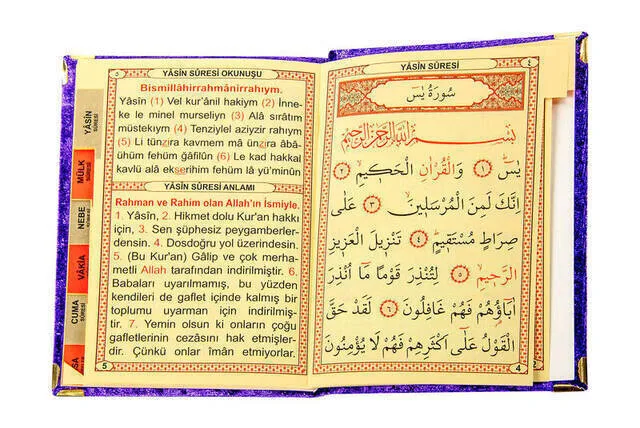 YÂSİN SÛRESİ
٤
سُورَةُ يٰسٓ
بِسْمِ اللّٰهِ الرَّحْمٰنِ الرَّحِيمِ
يٰسٓ ﴿١﴾ وَالْقُرْاٰنِ الْحَكِيمِ ﴿٢﴾
اِنَّكَ لَمِنَ الْمُرْسَلِينَ ﴿٣﴾ عَلٰى
صِرَاطٍ مُسْتَقِيمٍ ﴿٤﴾ تَنْزِيلَ الْعَزِيزِ
الرَّحِيمِ ﴿٥﴾ لِتُنْذِرَ قَوْمًا مَٓا اُنْذِرَ
اٰبَٓاؤُ۬هُمْ فَهُمْ غَافِلُونَ ﴿٦﴾ لَقَدْ حَقَّ
الْقَوْلُ عَلٰٓى اَكْثَرِهِمْ فَهُمْ لَا يُؤْمِنُونَ
4
2
٥
YÂSİN SÛRESİ OKUNUŞU
Bismillâhirrahmânirrahıym.
Yâsîn (1) Vel kur'ânil hakiym (2) İnne-
ke le minel murseliyn (3) Alâ sırâtım
müstekıym (4) Tenziylel aziyzir rahıym
(5) Li tünzira kavmem mâ ünzira âbâ-
ühüm fehüm gâfilûn (6) Le kad hakkal
kavlü alâ ekserihim fehüm lâ yü'minûn
YÂSİN SÛRESİ ANLAMI
Rahman ve Rahim olan Allah'ın İsmiyle.
1. Yâsîn, 2. Hikmet dolu Kur'an hakkı
için, 3. Sen şüphesiz peygamberler-
densin. 4. Dosdoğru yol üzerindesin.
5. (Bu Kur'an) Gâlip ve çok merha-
metli Allah tarafından indirilmiştir. 6.
Babaları uyarılmamış, bu yüzden
kendileri de gaflet içinde kalmış bir
toplumu uyarman için indirilmiş-
tir. 7. Yemin olsun ki onların çoğu
gafletlerinin cezasını hak etmişler-
dir. Çünkü onlar îman etmiyorlar.
5
YÂSİN
SÛRESİ
MÜLK
SÛRESİ
NEBE
SÛRESİ
VÂKIA
CUMA
SÛRESİ